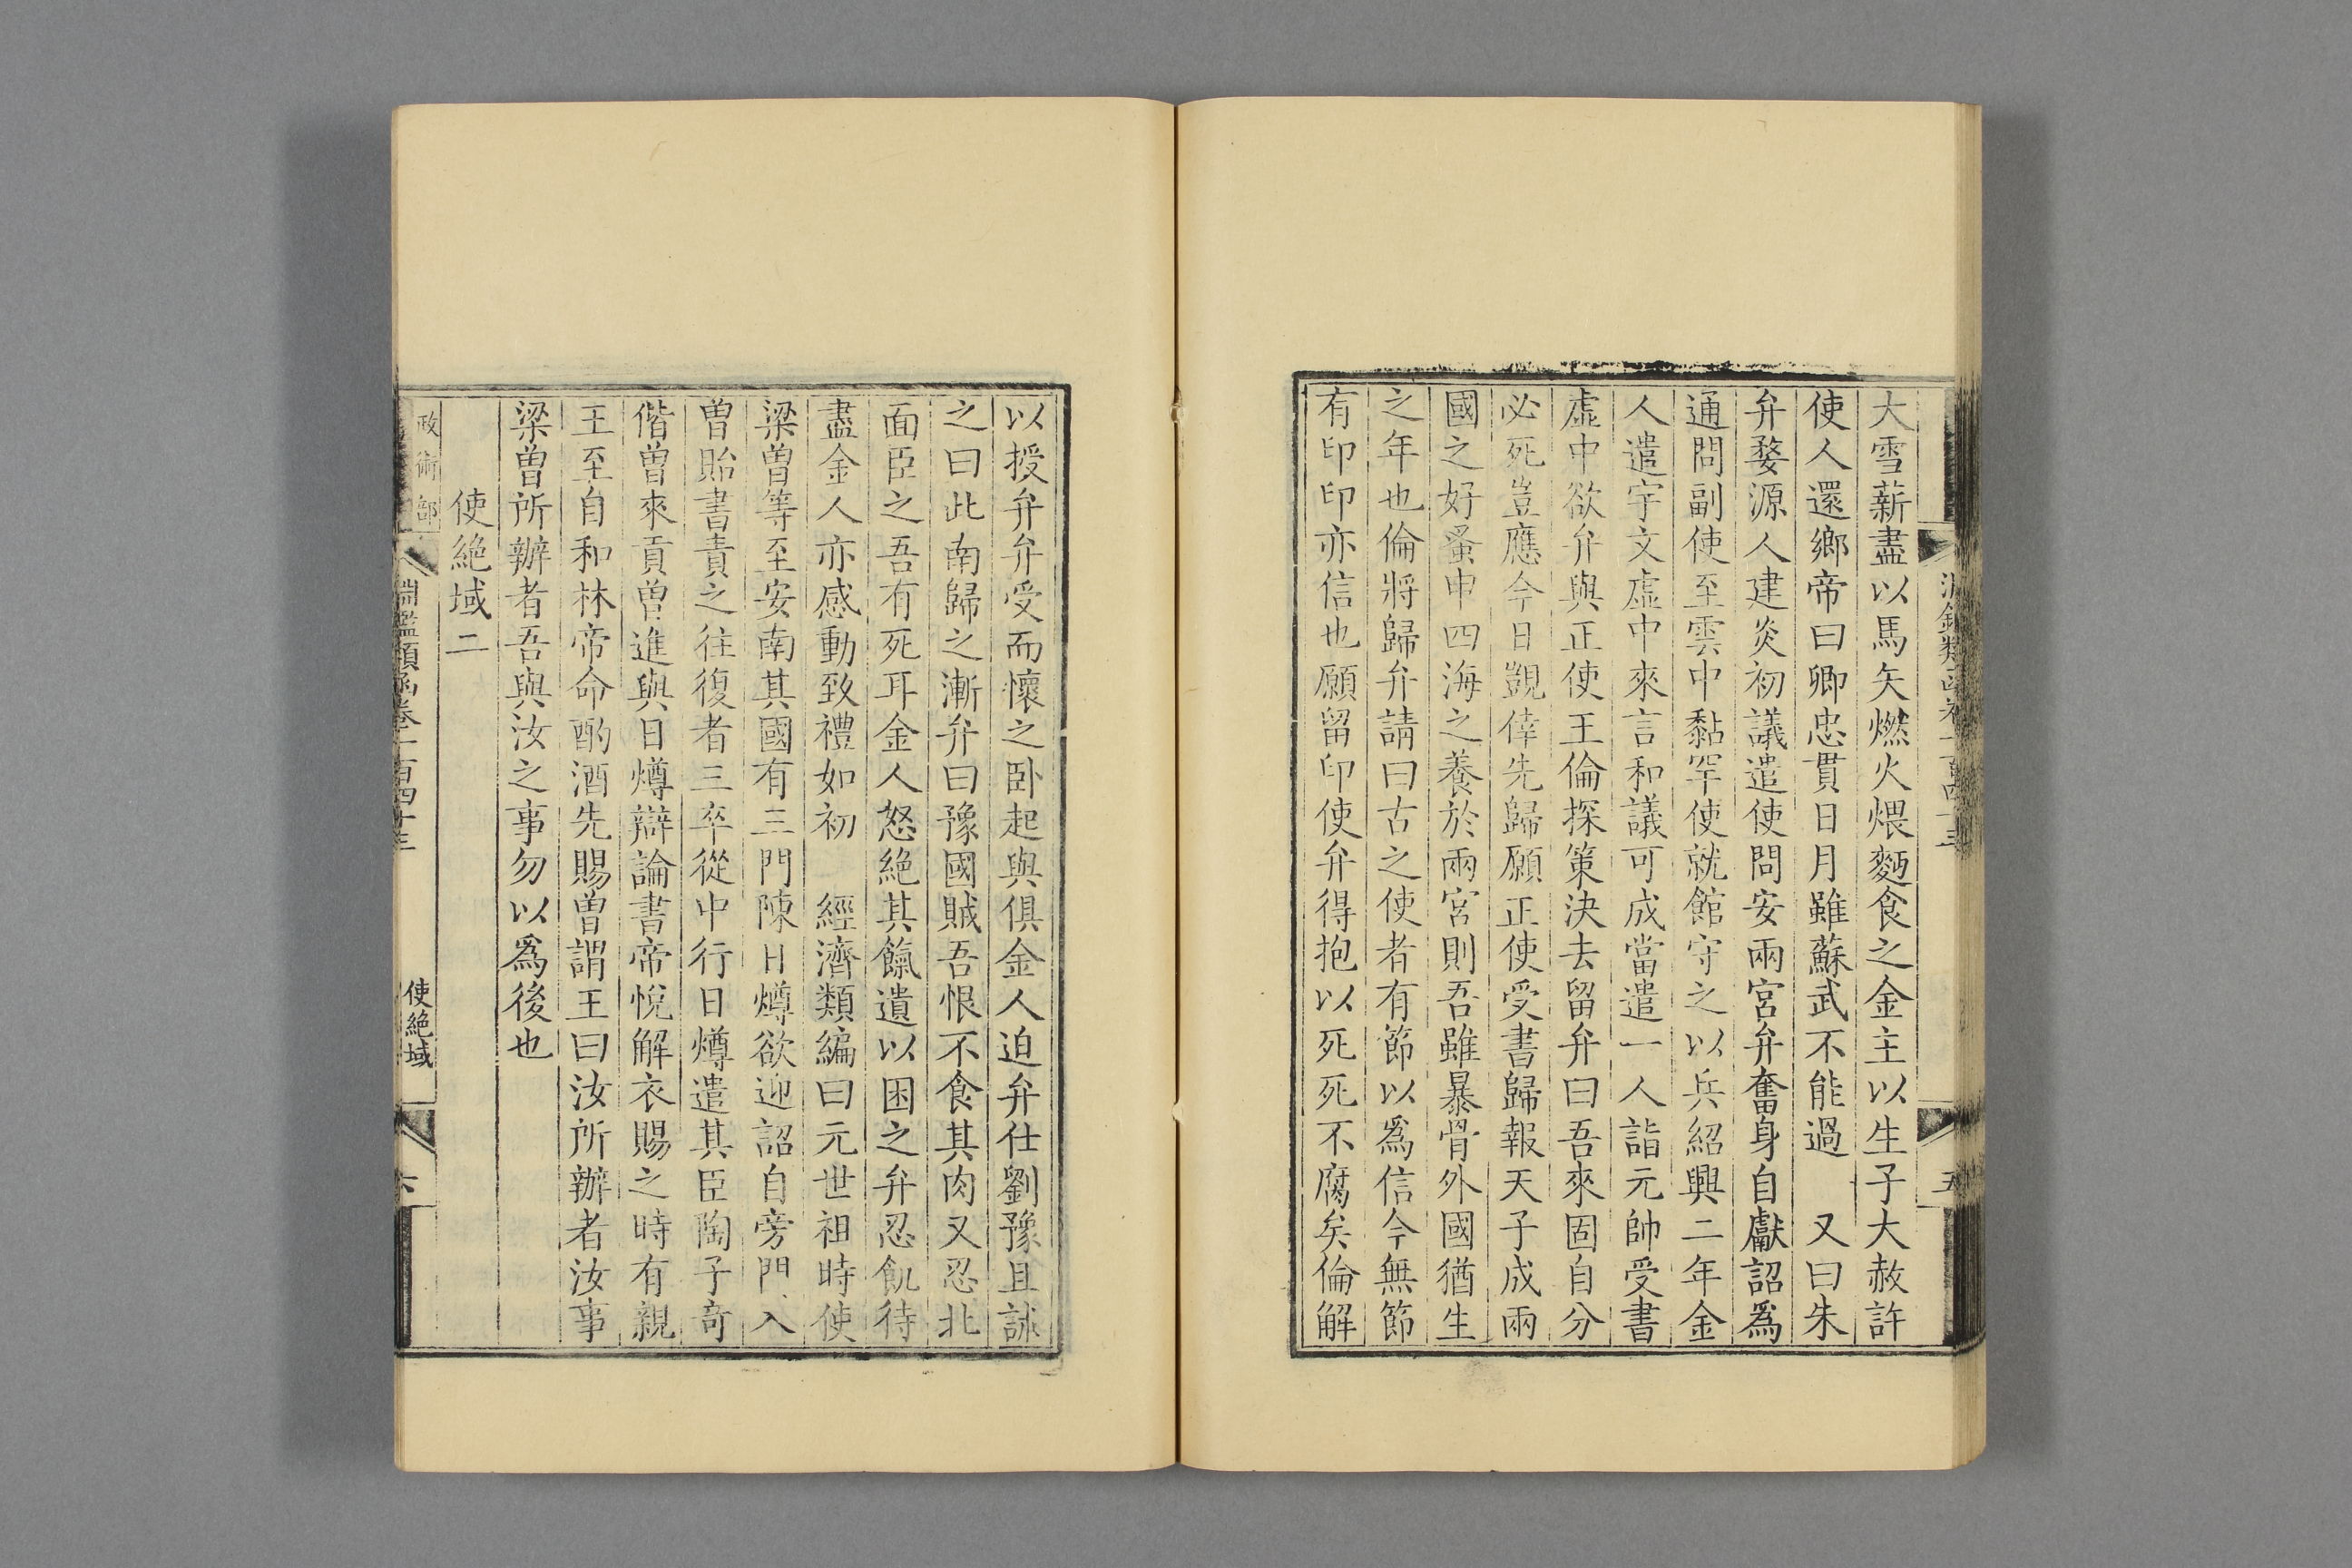 大雪薪盡以馬矢燃火煨麪食之金主以生子大赦許
使人還鄉帝曰卿忠貫日月雖蘇武不能過　又曰朱
弁婺源人建炎初議遣使問安兩宮弁奮身自獻詔爲
通問副使至雲中黏罕使就館守之以兵紹興二年金
人遣宇文虛中來言和議可成當遣一人詣元帥受書
虛中欲弁與正使王倫探策決去留弁曰吾來固自分
必死豈應今日覬倖先歸願正使受書歸報天子成兩
國之好蚤申四海之養於兩宮則吾雖暴骨外國猶生
之年也倫將歸弁請曰古之使者有節以爲信今無節
有印印亦信也願留印使弁得抱以死死不腐矣倫解
以授弁弁受而懷之卧起與俱金人迫弁仕劉豫且訹
之曰此南歸之漸弁曰豫國賊吾恨不食其肉又忍北
面臣之吾有死耳金人怒絶其餼遺以困之弁忍飢待
盡金人亦感動致禮如初　經濟類編曰元世祖時使
梁曽等至安南其國有三門陳日㷟欲迎詔自旁門入
曽貽書責之往復者三卒從中行日㷟遣其臣陶子奇
偕曽來貢曽進與日㷟辯論書帝悅解衣賜之時有親
王至自和林帝命酌酒先賜曽謂王曰汝所辦者汝事
梁曽所辦者吾與汝之事勿以爲後也
使絶域二
政術部
淵鑑類函卷一百四十三
使絶域
六